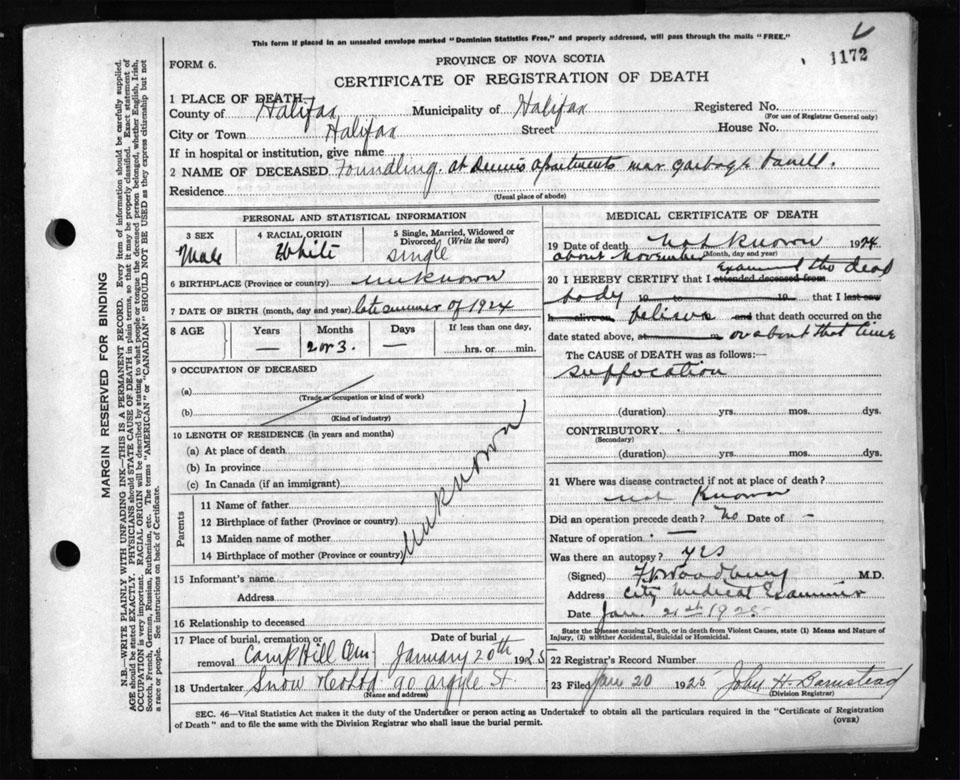 This form if placed in an unsealed envelope marked "Dominion Statistics Free," and properly addressed, will pass through the mails "FREE."
1172
FORM 6.
PROVINCE OF NOVA SCOTIA
CERTIFICATE OF REGISTRATION OF DEATH
1 PLACE OF DEATH
County of Halifax Municipality of Halifax Registered No.
(For use of Registrar General only)
City or Town Halifax Street House No.
If in hospital or institution, give name
2 NAME OF DECEASED Foundling. at Dennis apartments near garbage barrell.
Residence
(Usual place of abode)
PERSONAL AND STATISTICAL INFORMATION
3 SEX 4 RACIAL ORIGIN 5 Single, Married, Widowed or Divorced, (Write the word)
Male White Single
6 BIRTHPLACE (Province or country) unknown
7 DATE OF BIRTH (month, day and year) late summer of 1924
8 AGE Years Months Days If less than one day,
— 2 or 3. — hrs. or min.
9 OCCUPATION OF DECEASED
(a)
(Trade or occupation or kind of work)
(b)
(Kind of industry)
10 LENGTH OF RESIDENCE (in years and months)
(a) At place of death
(b) In province
(c) In Canada (if an immigrant)
Parents
11 Name of father
12 Birthplace of father (Province or country)
13 Maiden name of mother
14 Birthplace of mother (Province or country)
unknown
15 Informant's name
Address
16 Relationship to deceased
17 Place of burial, cremation or removal Date of burial
Camp Hill Cem January 20th 1925
18 Undertaker Snow & Co Ltd 90 Argyle St.
(Name and address)
MEDICAL CERTIFICATE OF DEATH
19 Date of death not known 1924
about November (Month, day and year)
20 I HEREBY CERTIFY that I attended deceased from examined the dead
body 19 to 19 that I last saw
h alive on believe and that death occurred on the
date stated above, at m on or about that time
The CAUSE of DEATH was as follows:—
suffocation
(duration) yrs. mos. dys.
CONTRIBUTORY
(Secondary)
(duration) yrs. mos. dys.
21 Where was disease contracted if not at place of death?
not known
Did an operation precede death? no Date of –
Nature of operation —
Was there an autopsy? yes
(Signed) Woodbury M.D.
Address City Medical Examiner
Date Jan. 21st 1925
State the Disease causing Death, or in death from Violent Causes, state (1) Means and Nature of Injury, (2) whether Accidental, Suicidal or Homicidal.
22 Registrar's Record Number
23 Filed Jan 20 1925 John H. Barnstead
(Division Registrar)
SEC. 46—Vital Statistics Act makes it the duty of the Undertaker or person acting as Undertaker to obtain all the particulars required in the "Certificate of Registration
of Death" and to file the same with the Division Registrar who shall issue the burial permit. (OVER)
MARGIN RESERVED FOR BINDING
N.B.—WRITE PLAINLY WITH UNFADING INK—THIS IS A PERMANENT RECORD. Every item of information should be carefully supplied.
AGE should be stated EXACTLY. PHYSICIANS should STATE CAUSE OF DEATH in plain terms, so that it may be properly classified. Exact statement of
OCCUPATION is very important. RACIAL ORIGIN will be described by stating to what people or tongue the deceased person belonged, whether English, Irish,
Scotch, French, German, Russian, Ruthenian, etc. The terms "AMERICAN" or "CANADIAN" SHOULD NOT BE USED as they express citizenship but not
a race or people. See instructions on back of Certificate.